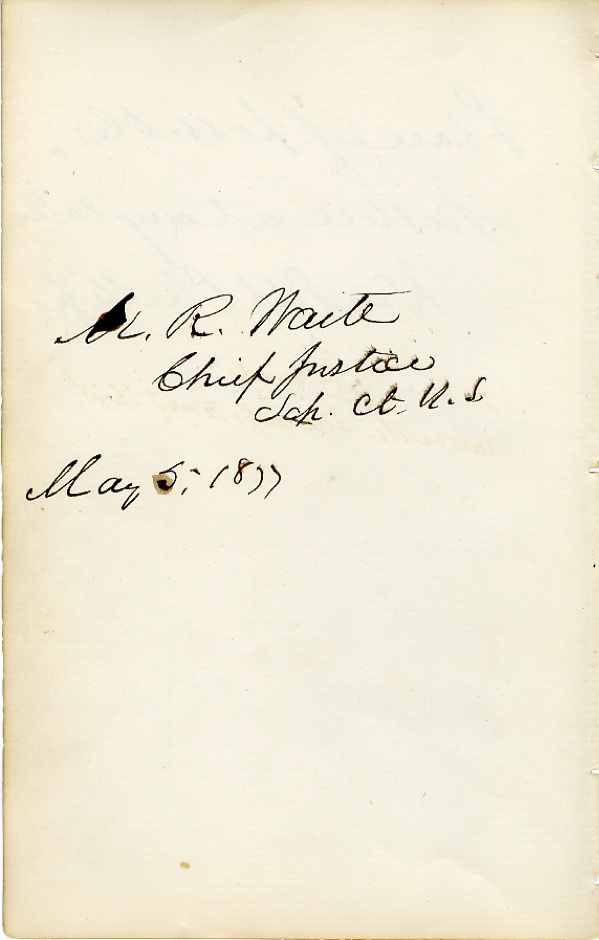 M. R. Waite
Chief Justice
Sup. Ct. U.S
May 5, 1877